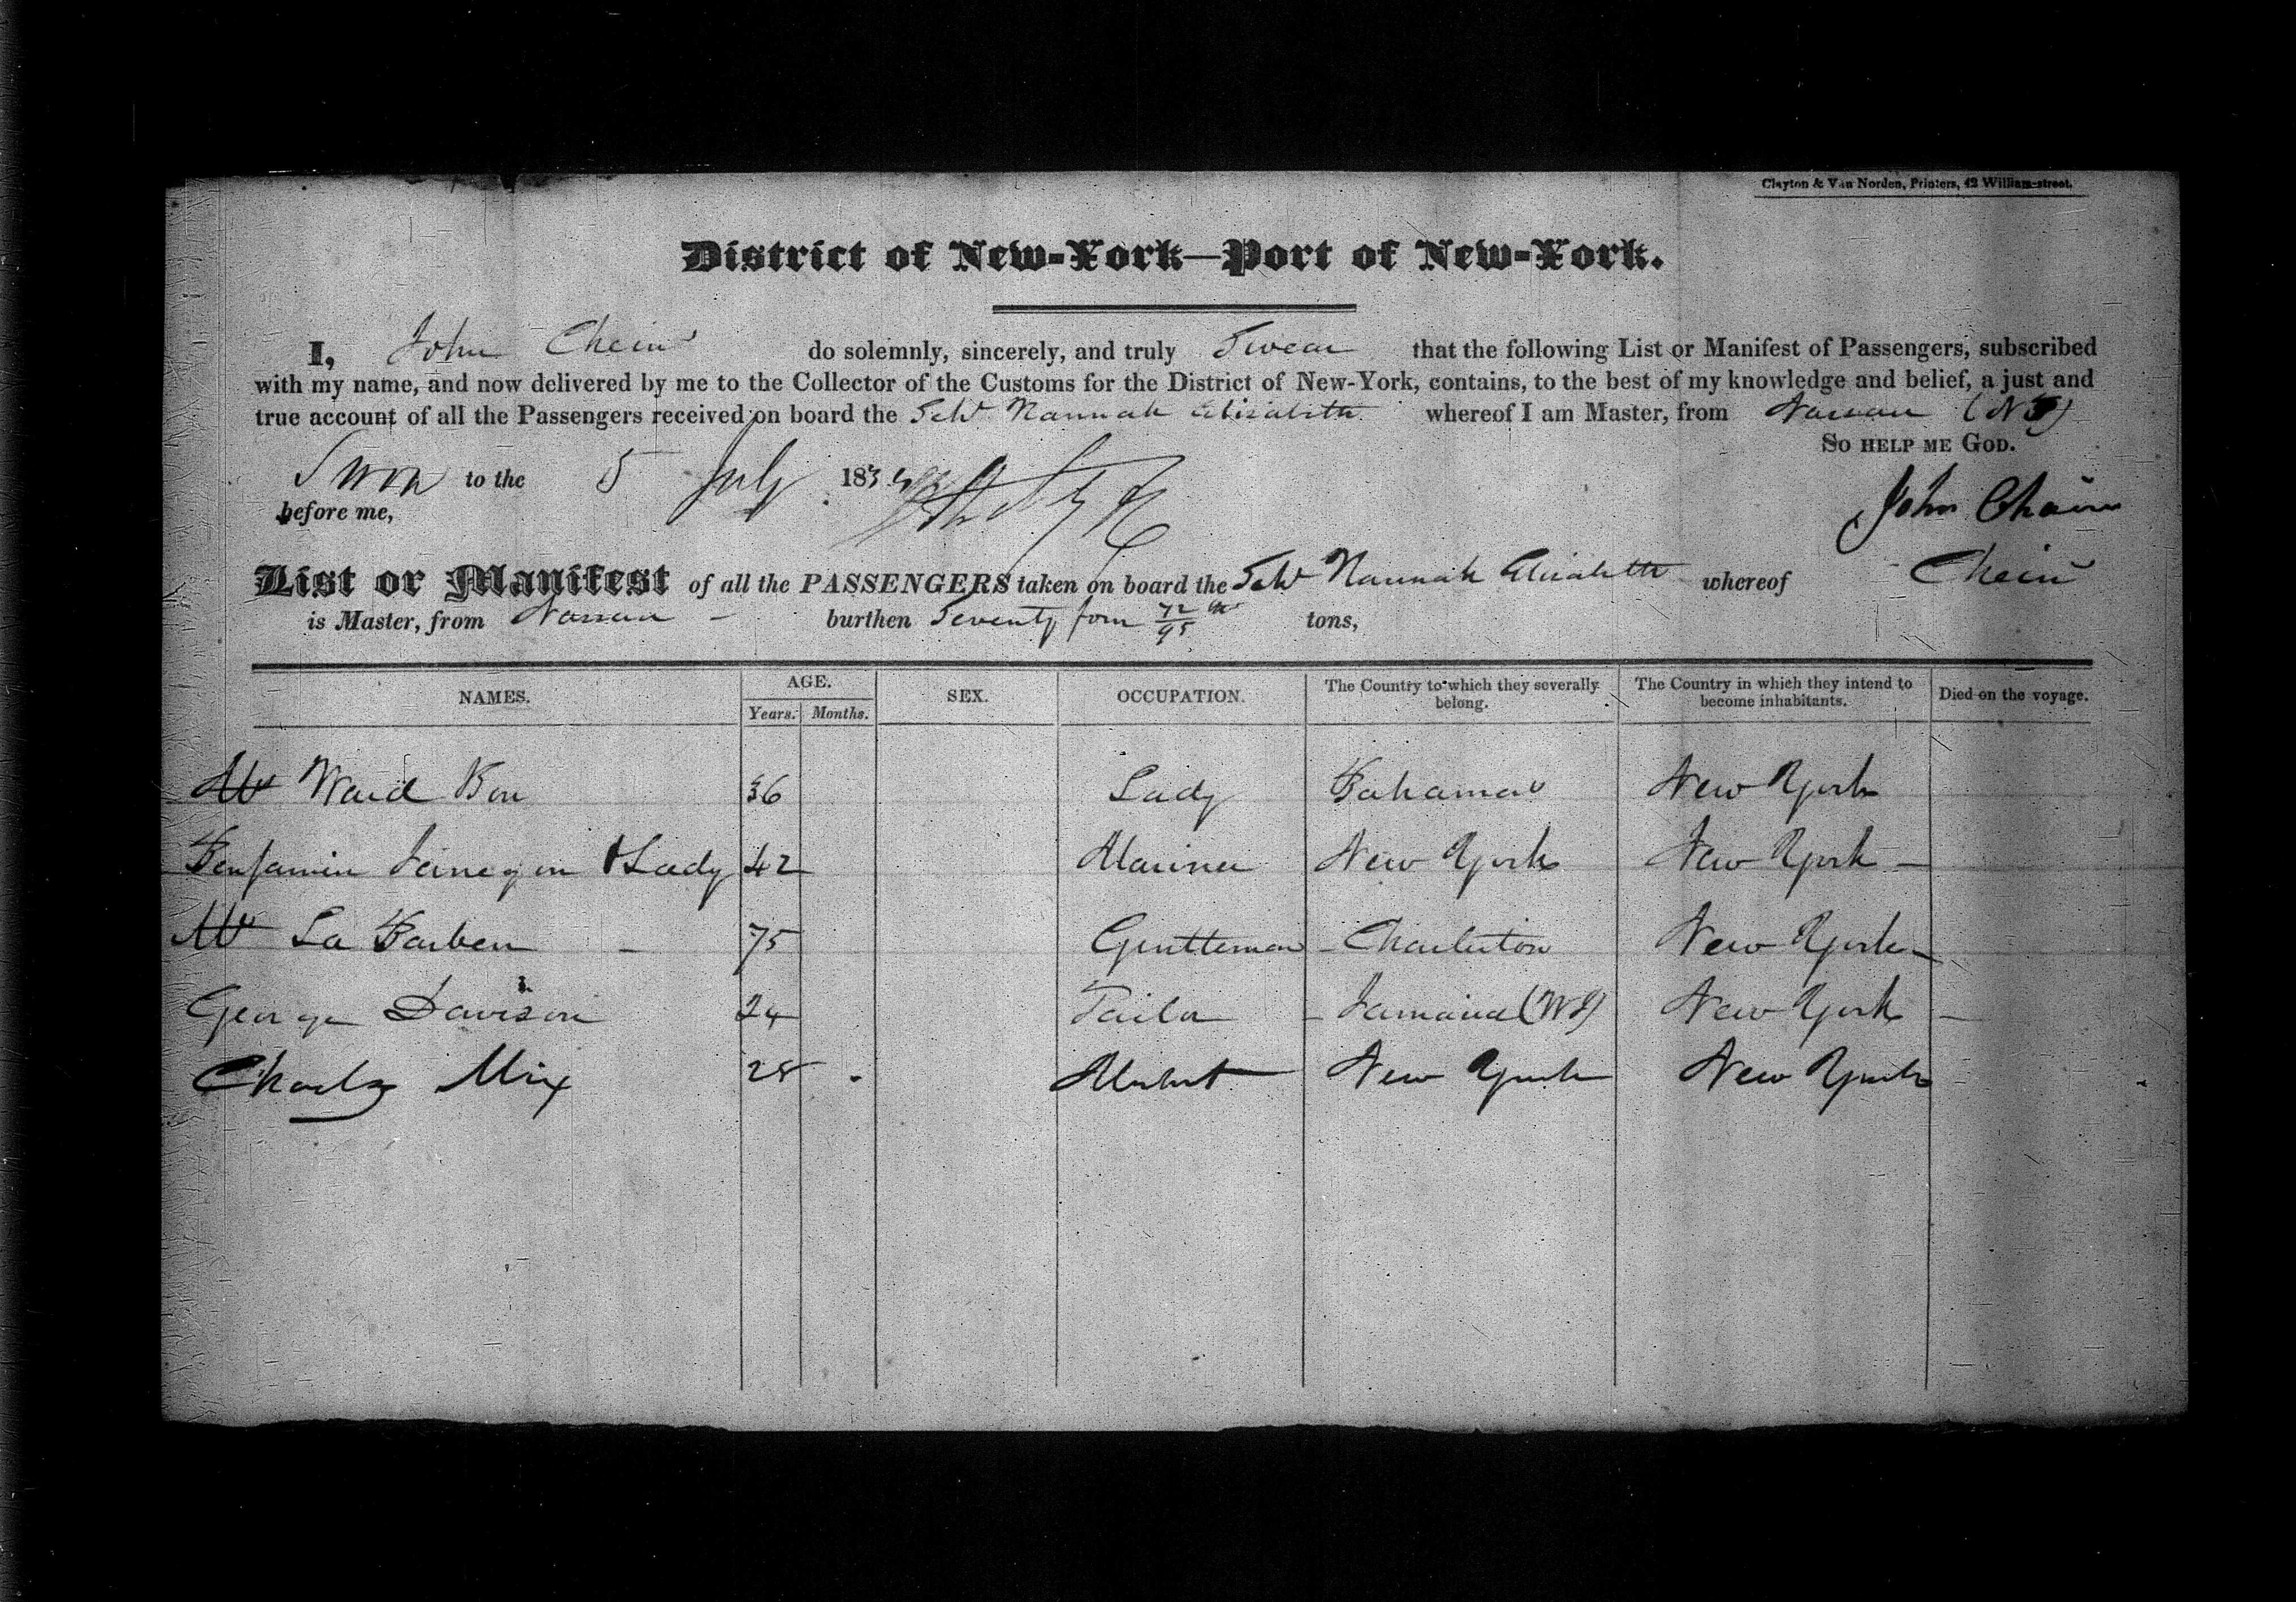 Clayton & Van Norden, Printers, 42 William-street.
District of New-York—Port of New-York.
I, John Chein do solemnly, sincerely, and truly Swear that the following List or Manifest of Passengers, subscribed
with my name, and now delivered by me to the Collector of the Customs for the District of New-York, contains, to the best of my knowledge and belief, a just and
true account of all the Passengers received on board the Schr Hannah Elizabeth whereof I am Master, from Nassau
So help me God.
Sworn to the 5 July 183
before me,
John
List or Manifest of all the PASSENGERS taken on board the Schr Hannah Elizabeth whereof Chein
is Master, from Nassau - burthen Seventy four 72/95 tons,
NAMES. AGE. SEX. OCCUPATION. The Country to which they severally belong. The Country in which they intend to become inhabitants. Died on the voyage.
Years. Months.
Ward 36 Lady Bahamas New York
Benjamin & Lady 42 Mariner New York New York -
La 75 Gentleman - Charleston New York -
George Davison 24 Tailor - Jamaica (WI) New York -
Charles Mix 28 New York New York